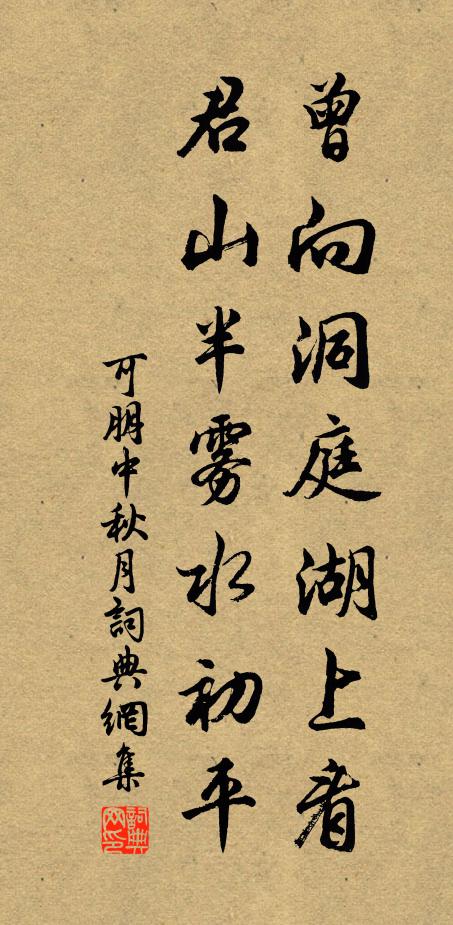 曾向洞庭湖上看
君山半雾水初平
可朋中秋月詞典網集
詞典网印